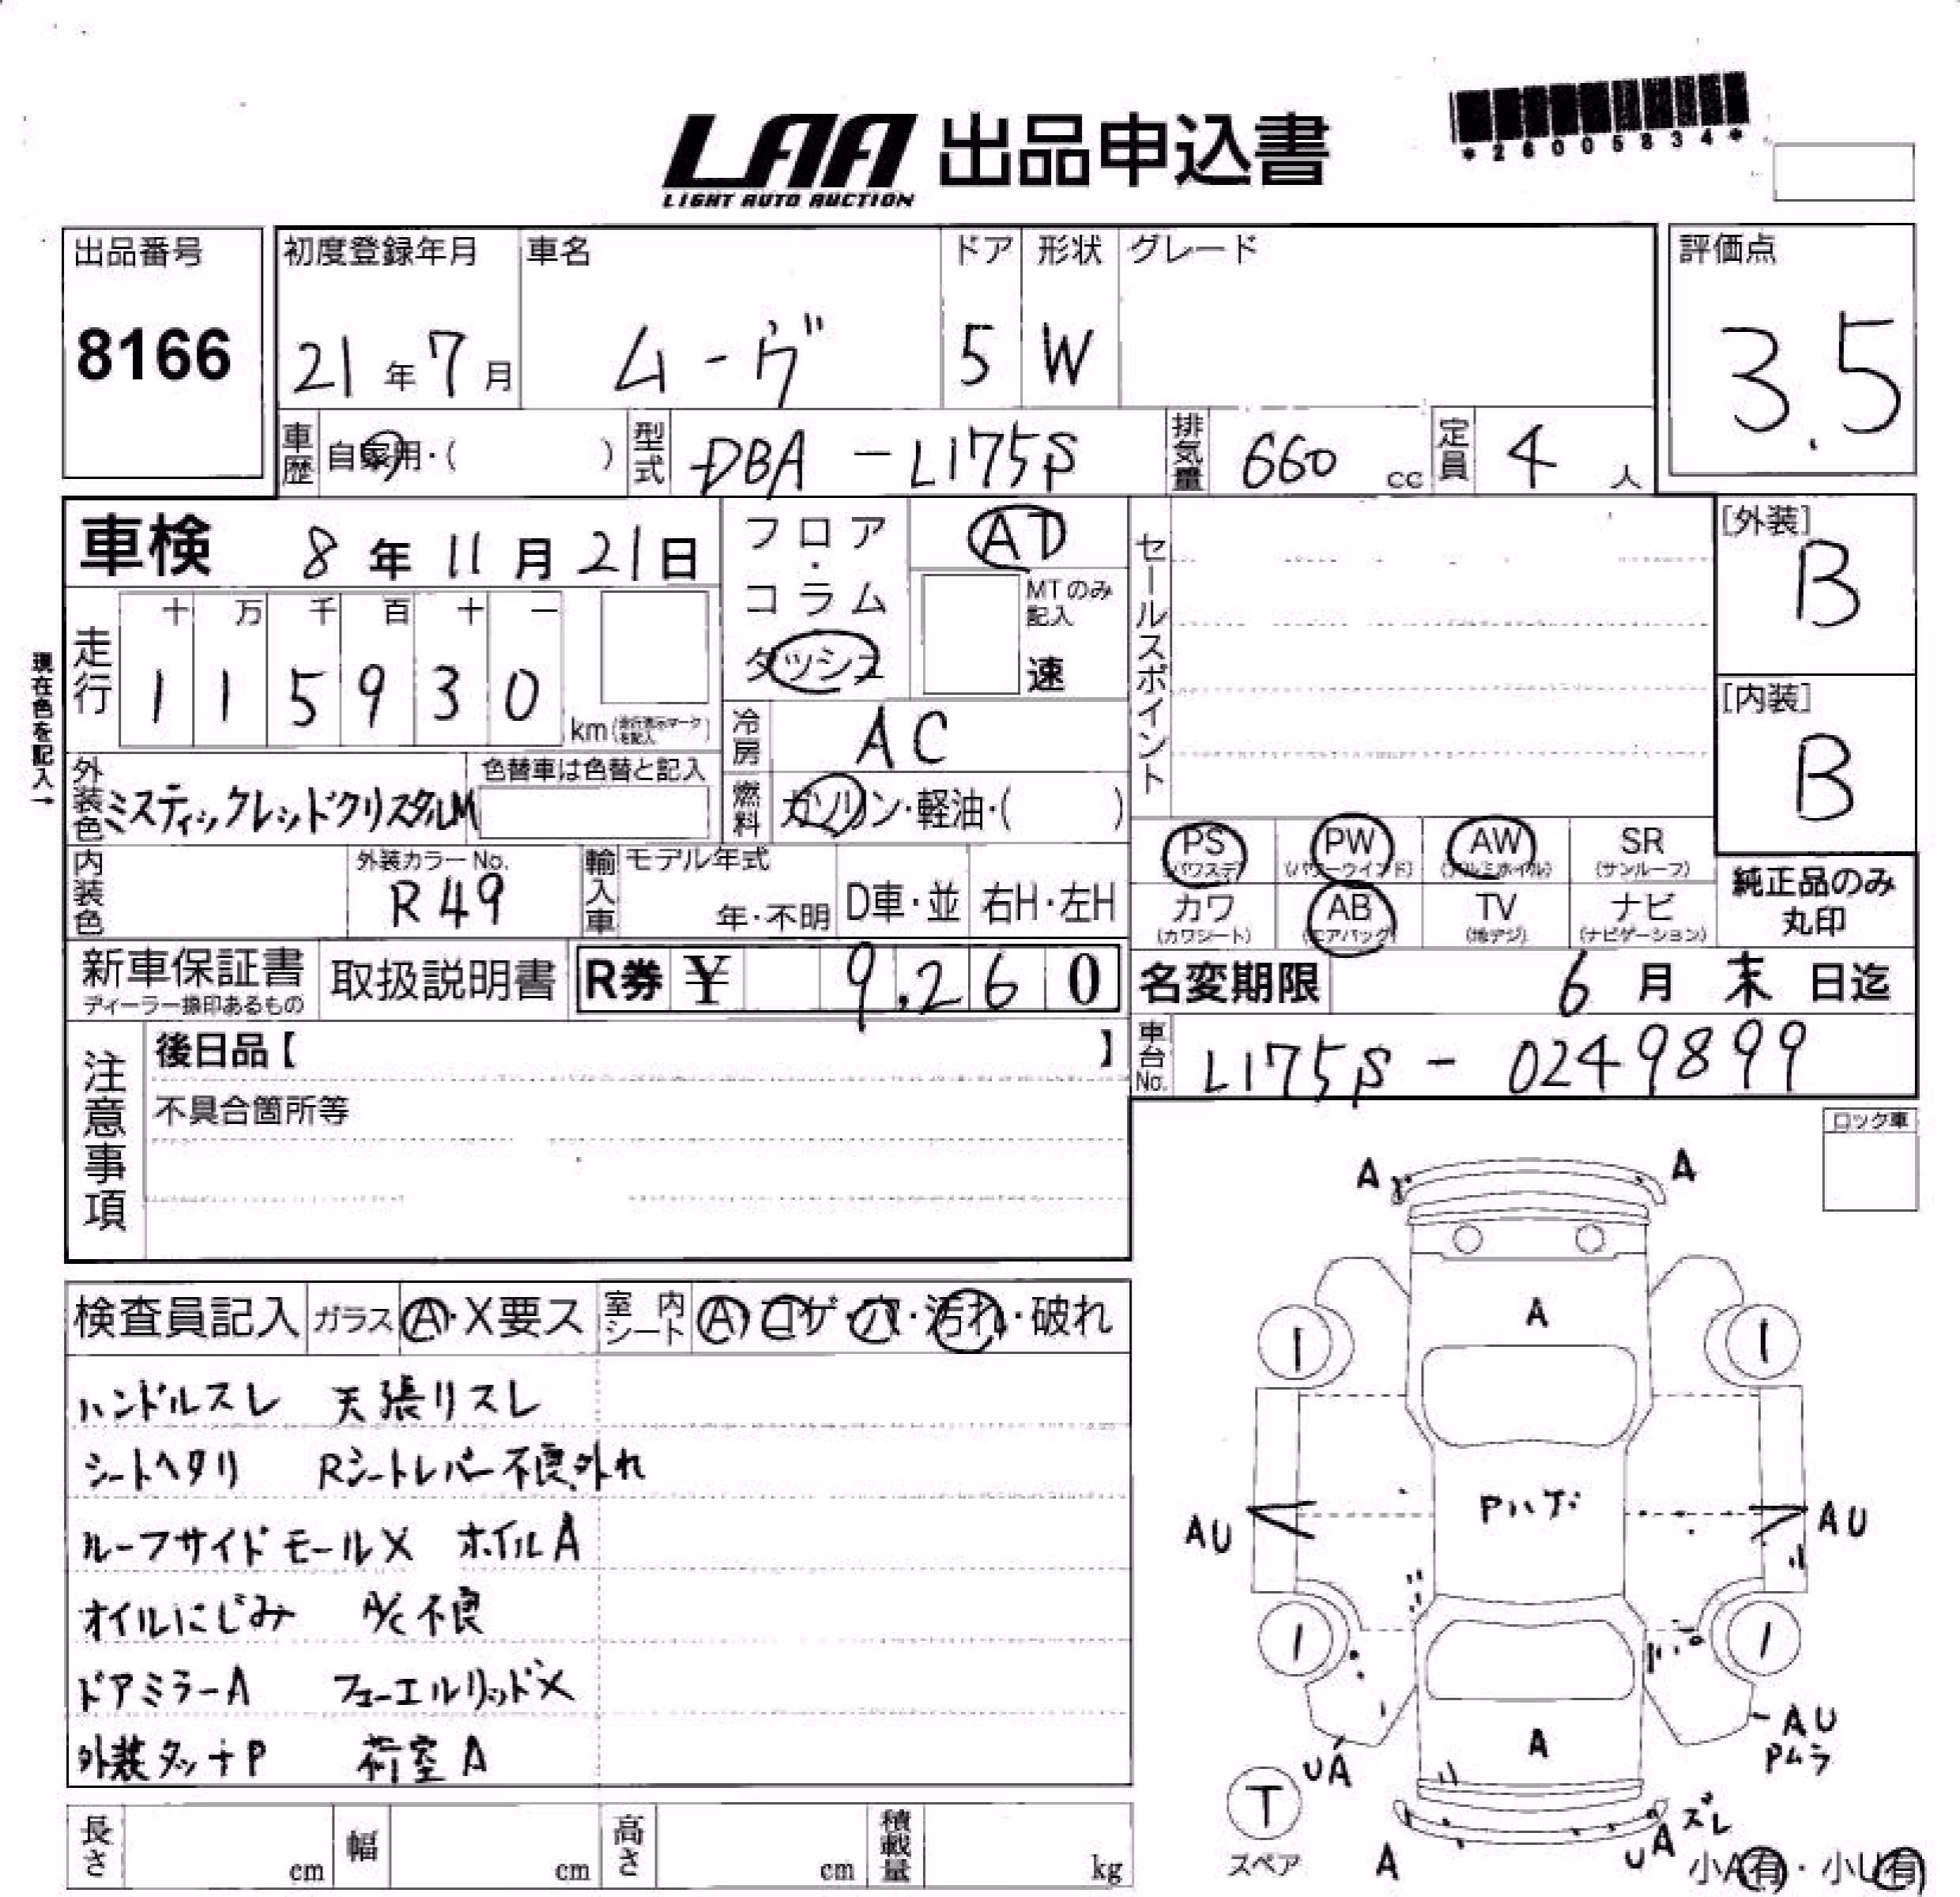 LAA 出品申込書
LIGHT AUTO AUCTION
*26005834*
出品番号
8166
初度登録年月
21年7月
車名
ムーヴ
ドア
5
形状
W
グレード
評価点
3.5
車歴 自家用・( )
型式 DBA-L175S
排気量 660 cc
定員 4 人
車検 8年11月21日
フロア・コラム
ダッシュ
AT
MTのみ記入
速
セールスポイント
[外装]
B
[内装]
B
現在色を記入→
走行
十 万 千 百 十 一
1 1 5 9 3 0 km (走行表示マークを記入)
冷房 AC
外装色 ミスティックレッドクリスタルM
色替車は色替と記入
燃料 ガソリン・軽油・( )
PS (パワステ)
PW (パワーウインド)
AW (アルミホイル)
SR (サンルーフ)
カワ (カワシート)
AB (エアバッグ)
TV (地デジ)
ナビ (ナビゲーション)
純正品のみ
丸印
内装色
外装カラーNo.
R49
輸入車
モデル年式
年・不明
D車・並
右H・左H
新車保証書
ディーラー捺印あるもの
取扱説明書
R券 ¥ 9,260
名変期限 6月末日迄
車台No. L175S-0249899
注意事項
後日品【 】
不具合箇所等
ロック車
検査員記入 ガラス A・X要ス
室内シート A・コゲ・穴・汚れ・破れ
ハンドルスレ 天張リスレ
シートヘタリ Rシートレバー不良、外れ
ルーフサイドモールX ホイルA
オイルにじみ A/C不良
ドアミラーA フューエルリッドX
外装タッチP 荷室A
長さ cm
幅 cm
高さ cm
積載量 kg
A A
A
AU Pハゲ AU
A
UA
AU
Pムラ
T
スペア
A
UA ズレ
小A有・小U有